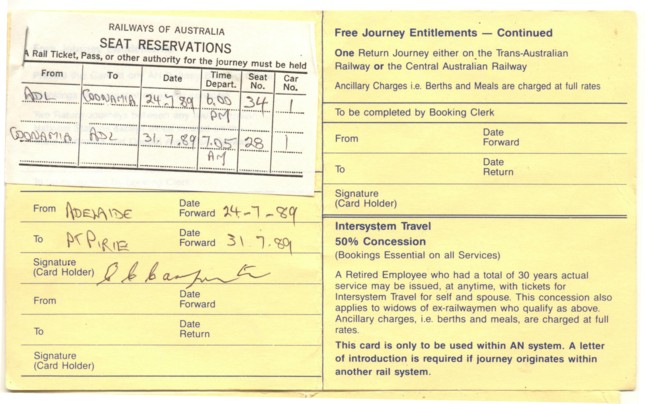 RAILWAYS OF AUSTRALIA
SEAT RESERVATIONS
A Rail Ticket, Pass, or other authority for the journey must be held
From To Date Time Depart. Seat No. Car No.
ADL COONAMIA 24.7.89 6.00 PM 34 1
COONAMIA ADL 31.7.89 7.05 AM 28 1
From ADELAIDE Date Forward 24-7-89
To PT PIRIE Date Forward 31.7.89
Signature
(Card Holder)
From Date Forward
To Date Return
Signature
(Card Holder)
Free Journey Entitlements — Continued
One Return Journey either on the Trans-Australian
Railway or the Central Australian Railway
Ancillary Charges i.e. Berths and Meals are charged at full rates
To be completed by Booking Clerk
From Date Forward
To Date Return
Signature
(Card Holder)
Intersystem Travel
50% Concession
(Bookings Essential on all Services)
A Retired Employee who had a total of 30 years actual
service may be issued, at anytime, with tickets for
Intersystem Travel for self and spouse. This concession also
applies to widows of ex-railwaymen who qualify as above.
Ancillary charges, i.e. berths and meals, are charged at full
rates.
This card is only to be used within AN system. A letter
of introduction is required if journey originates within
another rail system.